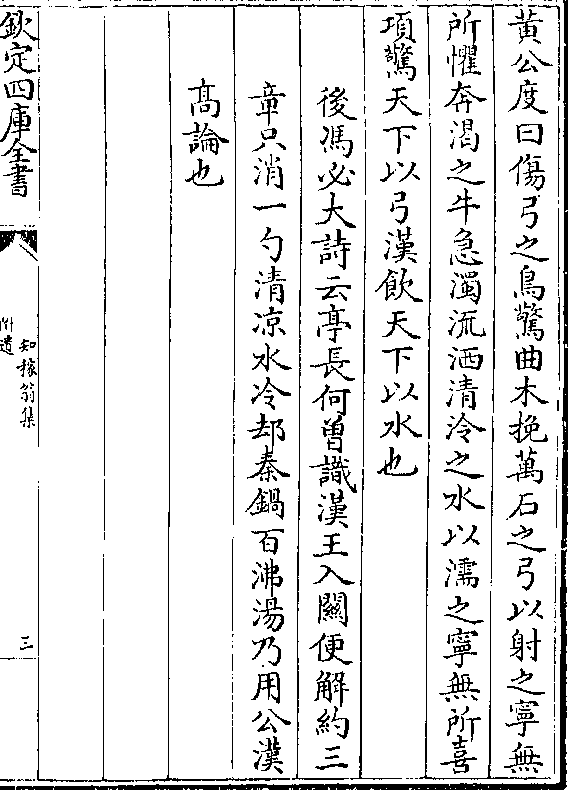 黄公度曰傷弓之鳥驚曲木挽萬石之弓以射之寧無
所懼奔渴之牛急濁流洒清泠之水以濡之寧無所喜
項驚天下以弓漢飲天下以水也
後馮必大詩云亭長何曾識漢王入關便解約三
章只消一勺清凉水冷却秦鍋百沸湯乃用公漢
髙論也
欽定四庫全書
知稼翁集
附遺
三